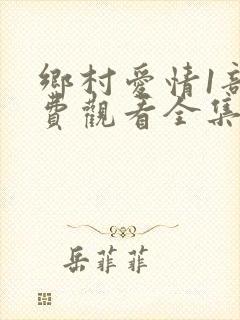 鄉村愛情1部
費觀看全集
岳菲菲